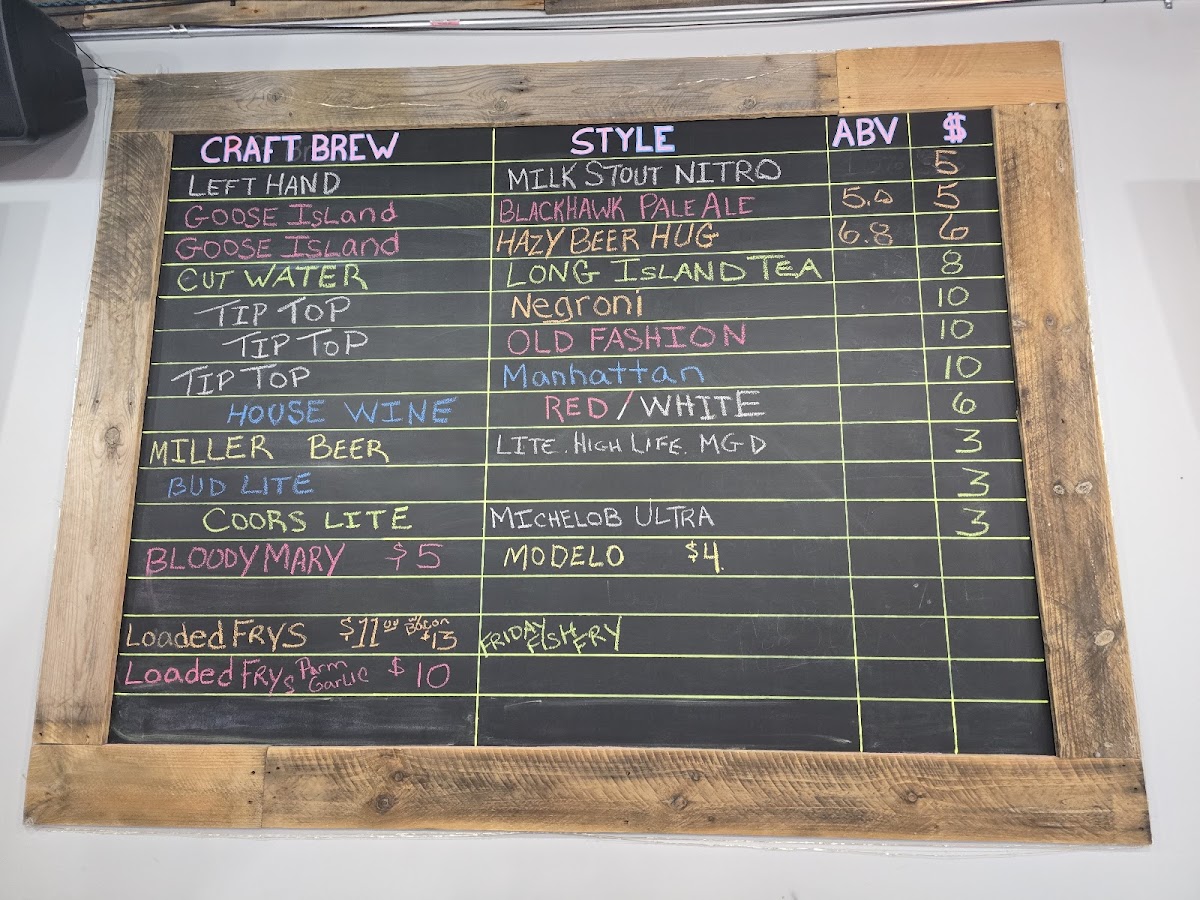 CRAFT BREW STYLE ABV $
LEFT HAND MILK STOUT NITRO 5
GOOSE ISLAND BLACKHAWK PALE ALE 5.0 5
GOOSE ISLAND HAZY BEER HUG 6.8 6
CUT WATER LONG ISLAND TEA 8
TIP TOP Negroni 10
TIP TOP OLD FASHION 10
TIP TOP Manhattan 10
HOUSE WINE RED/WHITE 6
MILLER BEER LITE. HIGH LIFE. MGD 3
BUD LITE 3
COORS LITE MICHELOB ULTRA 3
BLOODY MARY $5 MODELO $4
Loaded FRYS $11 Bacon $13 FRIDAY FISH FRY
Loaded FRYS Parm Garlic $10